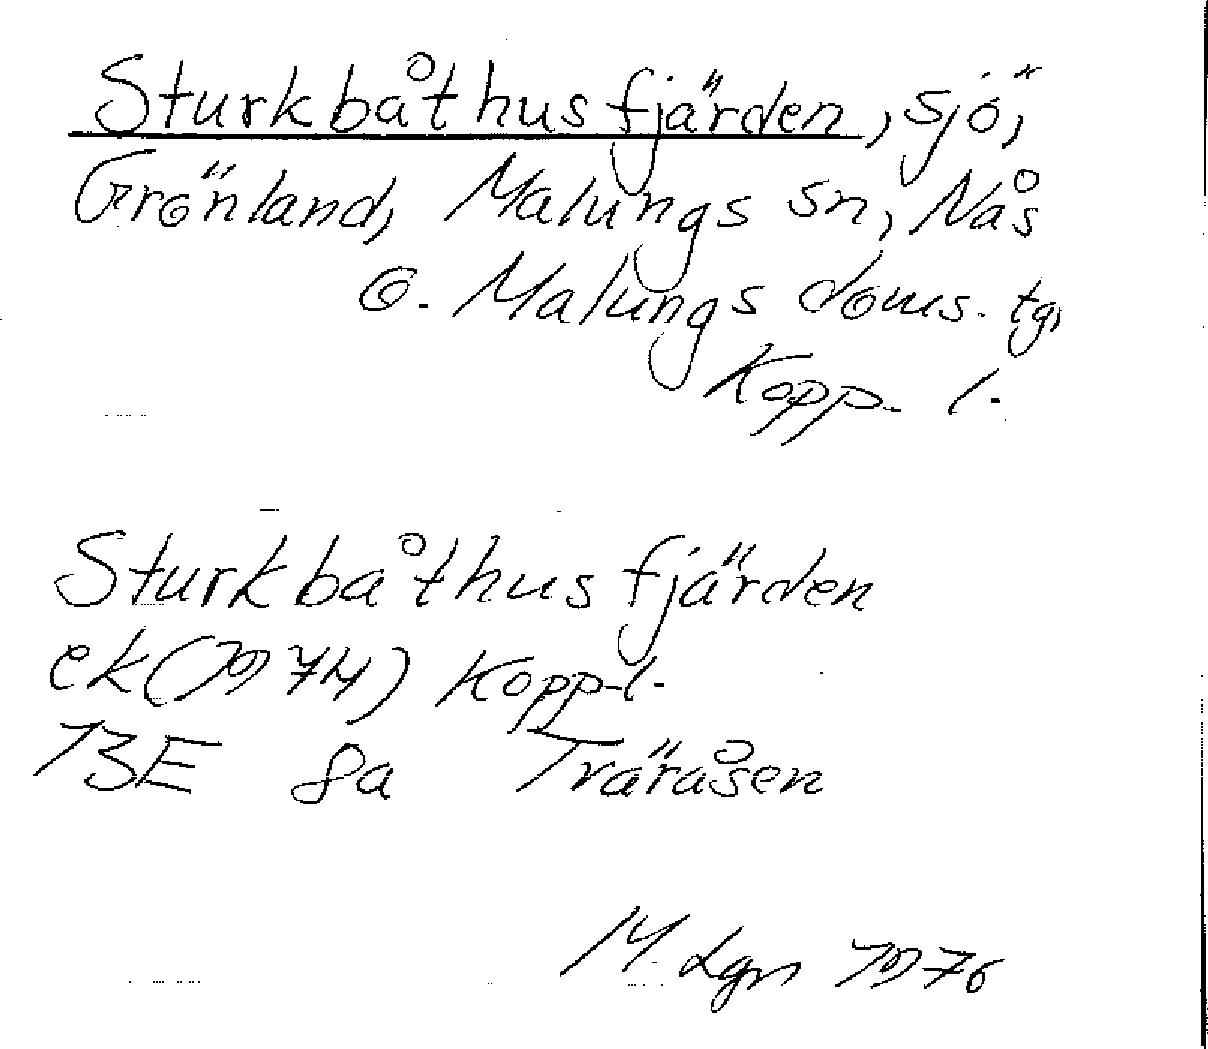 Sturkbåthusfjärden, sjö,
Grönland, Malungs sn, Nås
o. Malungs doms. tg,
Kopp. l.
Sturkbåthusfjärden
ek (1974) Kopp. l.
13E 8a Traråsen
M. Lgn 1976